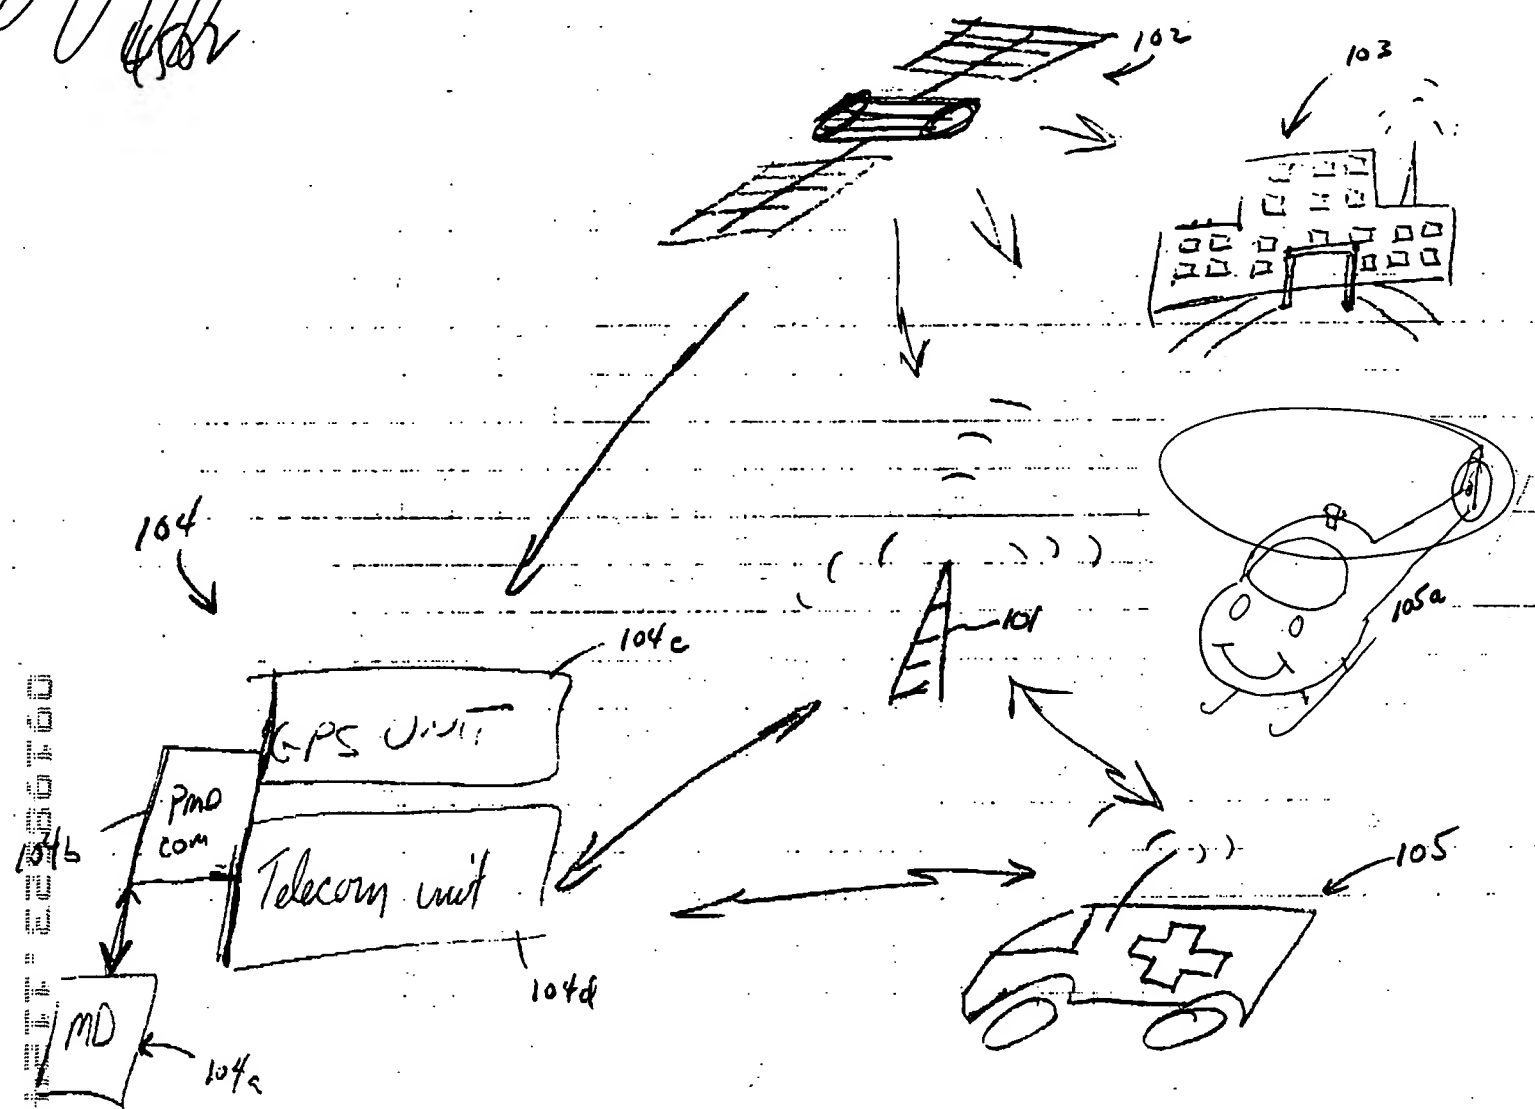 102
103
104
104c
101
105a
GPS UNIT
PMD
com
104b
Telecom unit
105
104d
MD
104a